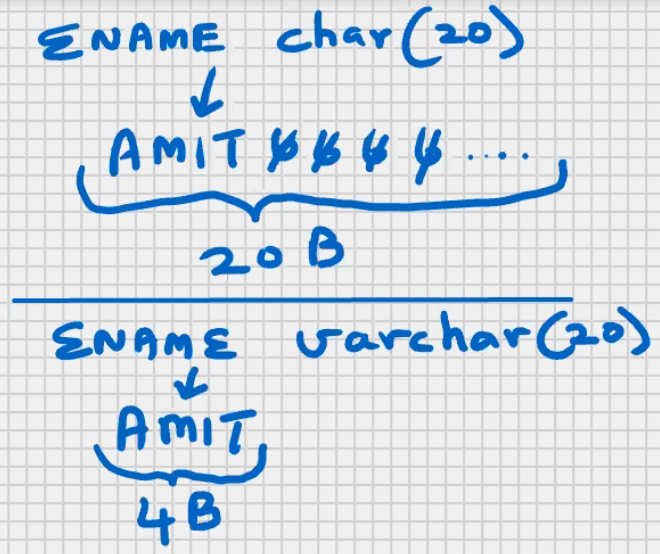 ENAME char(20)
↓
AMIT ƀ ƀ ƀ ƀ ....
20 B
ENAME varchar(20)
↓
AMIT
4B